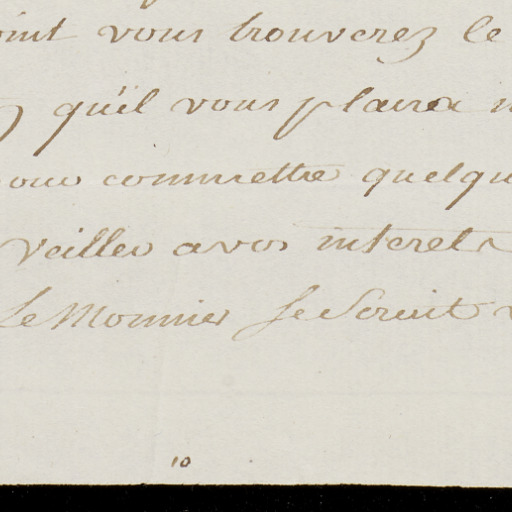 oint vous trouverez le
qu'il vous plaira
pour commettre quelqu
veiller a vos interets
Le Monnier
10